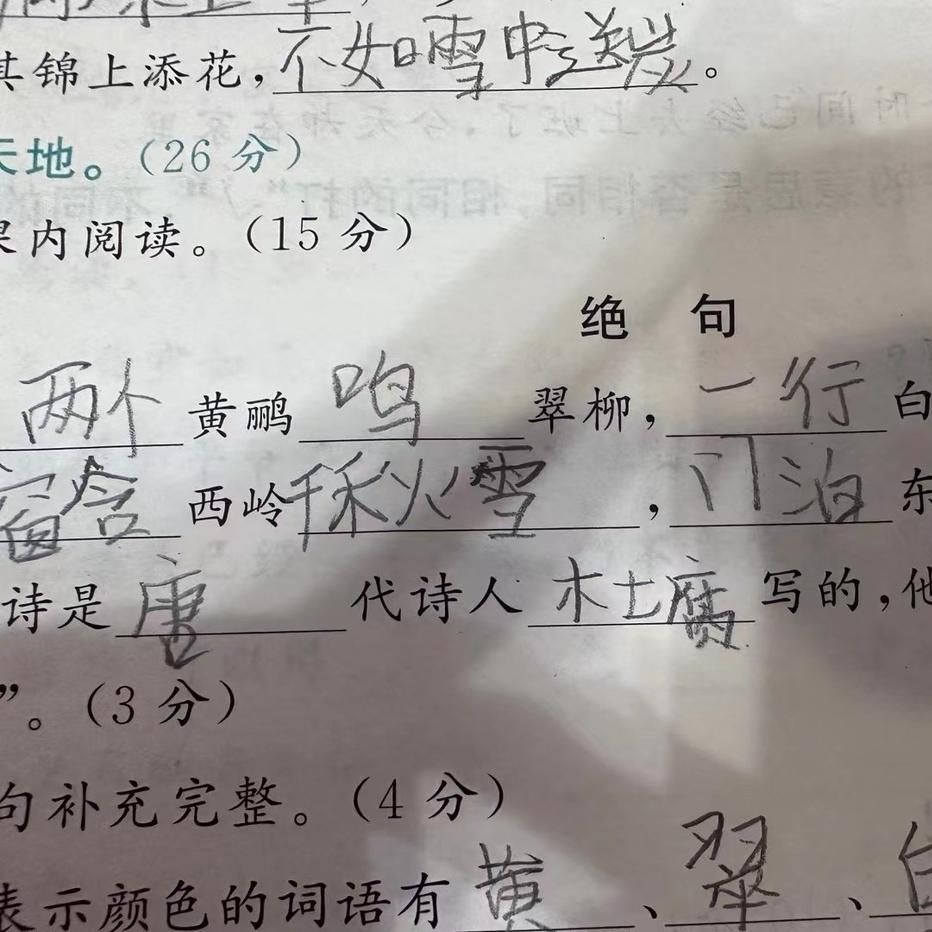 其锦上添花，不如雪中送炭。
天地。（26分）
课内阅读。（15分）
绝 句
两个黄鹂鸣翠柳，一行白
窗含西岭千秋雪，门泊东
诗是唐代诗人木土腐写的，他
”。（3分）
句补充完整。（4分）
表示颜色的词语有黄、翠、白